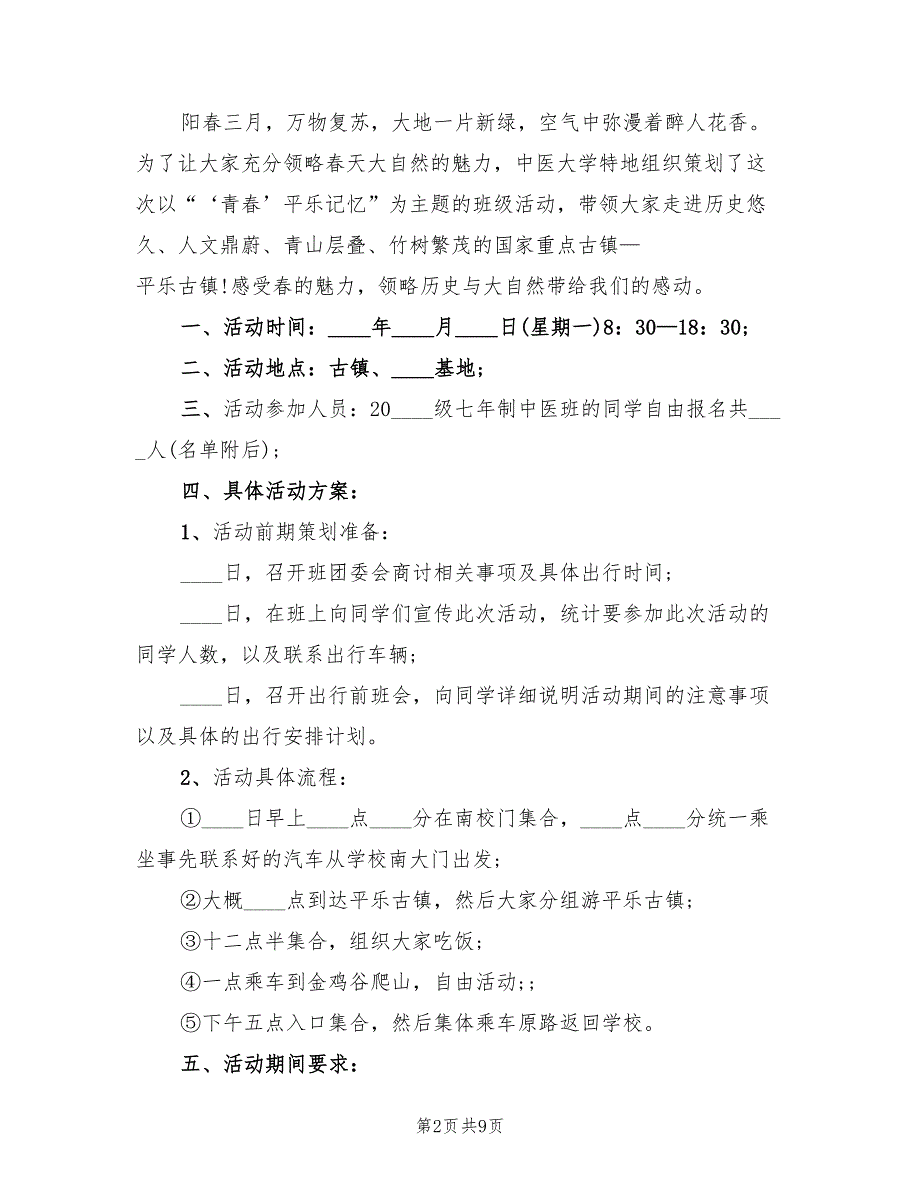 阳春三月，万物复苏，大地一片新绿，空气中弥漫着醉人花香。
为了让大家充分领略春天大自然的魅力，中医大学特地组织策划了这
次以“‘青春’平乐记忆”为主题的班级活动，带领大家走进历史悠
久、人文鼎蔚、青山层叠、竹树繁茂的国家重点古镇—
平乐古镇!感受春的魅力，领略历史与大自然带给我们的感动。
一、活动时间：____年____月____日(星期一)8：30—18：30;
二、活动地点：古镇、____基地;
三、活动参加人员：20____级七年制中医班的同学自由报名共___
_人(名单附后);
四、具体活动方案：
1、活动前期策划准备：
____日，召开班团委会商讨相关事项及具体出行时间;
____日，在班上向同学们宣传此次活动，统计要参加此次活动的
同学人数，以及联系出行车辆;
____日，召开出行前班会，向同学详细说明活动期间的注意事项
以及具体的出行安排计划。
2、活动具体流程：
①____日早上____点____分在南校门集合，____点____分统一乘
坐事先联系好的汽车从学校南大门出发;
②大概____点到达平乐古镇，然后大家分组游平乐古镇;
③十二点半集合，组织大家吃饭;
④一点乘车到金鸡谷爬山，自由活动;;
⑤下午五点入口集合，然后集体乘车原路返回学校。
五、活动期间要求：
第2页共9页